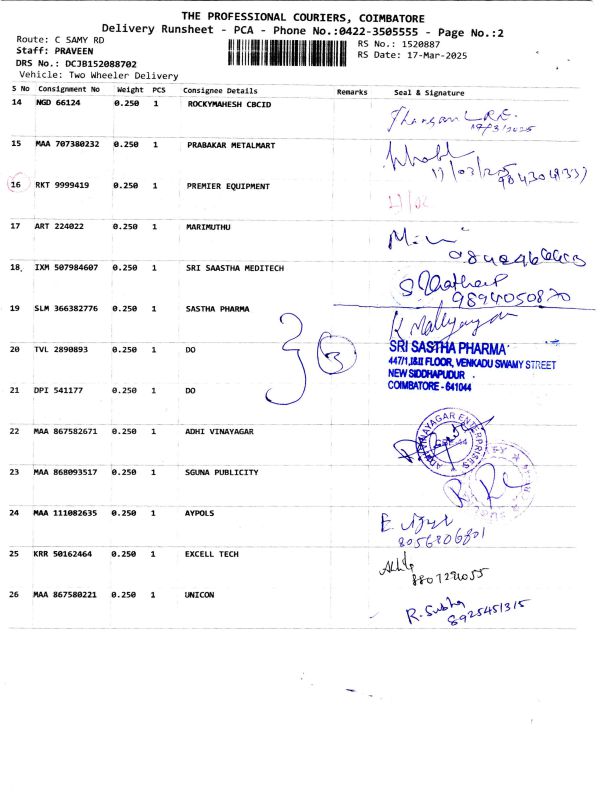 THE PROFESSIONAL COURIERS, COIMBATORE
Delivery Runsheet - PCA - Phone No.:0422-3505555 - Page No.:2
Route: C SAMY RD
Staff: PRAVEEN
DRS No.: DCJB152088702
Vehicle: Two Wheeler Delivery
RS No.: 1520887
RS Date: 17-Mar-2025
S No Consignment No Weight PCS Consignee Details Remarks Seal & Signature
14 NGD 66124 0.250 1 ROCKYMAHESH CBCID
17/3/2025
15 MAA 707380232 0.250 1 PRABAKAR METALMART
17/03/2025
16 RKT 9999419 0.250 1 PREMIER EQUIPMENT
17 ART 224022 0.250 1 MARIMUTHU
18 IXM 507984607 0.250 1 SRI SAASTHA MEDITECH
9894050870
19 SLM 366382776 0.250 1 SASTHA PHARMA
SRI SASTHA PHARMA
447/1,I&II FLOOR, VENKADU SWAMY STREET
NEW SIDDHAPUDUR
COIMBATORE - 641044
20 TVL 2890893 0.250 1 DO
3
21 DPI 541177 0.250 1 DO
22 MAA 867582671 0.250 1 ADHI VINAYAGAR
ADHI VINAYAGAR ENTERPRISES
23 MAA 868093517 0.250 1 SGUNA PUBLICITY
24 MAA 111082635 0.250 1 AYPOLS
8056806801
25 KRR 50162464 0.250 1 EXCELL TECH
26 MAA 867580221 0.250 1 UNICON
R. Subha
8925451315